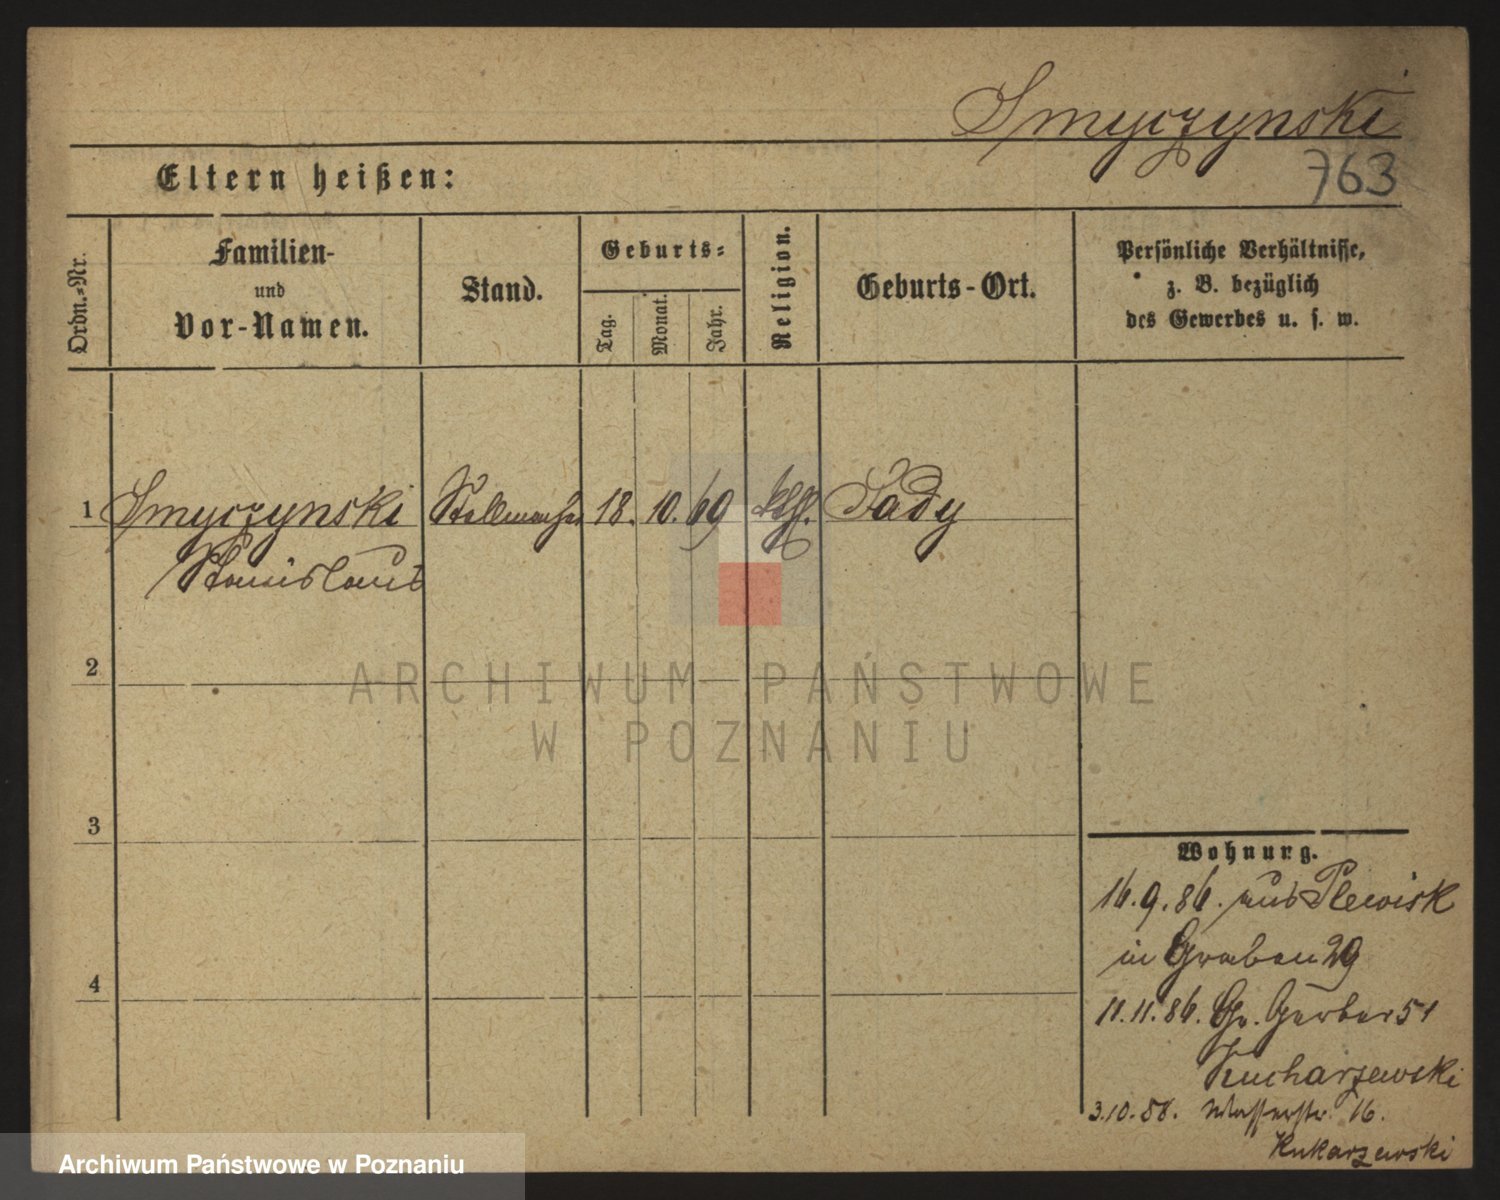 Smyczynski
763
Eltern heißen:
Ordn.-Nr.
Familien-
und
Vor-Namen.
Stand.
Geburts-
Tag.
Monat.
Jahr.
Religion.
Geburts-Ort.
Persönliche Verhältnisse,
z. B. bezüglich
des Gewerbes u. s. w.
1 Smyczynski Stellmacher 18. 10. 69 kth. Sady
Stanislaus
2
3
4
Wohnung.
16.9.86. aus Plewisk
in Graben 29
11.11.86. Gr. Gerber 51
Kucharzewski
3.10.88. Wasserstr. 16.
Kukarzewski
ARCHIWUM PAŃSTWOWE
W POZNANIU
Archiwum Państwowe w Poznaniu